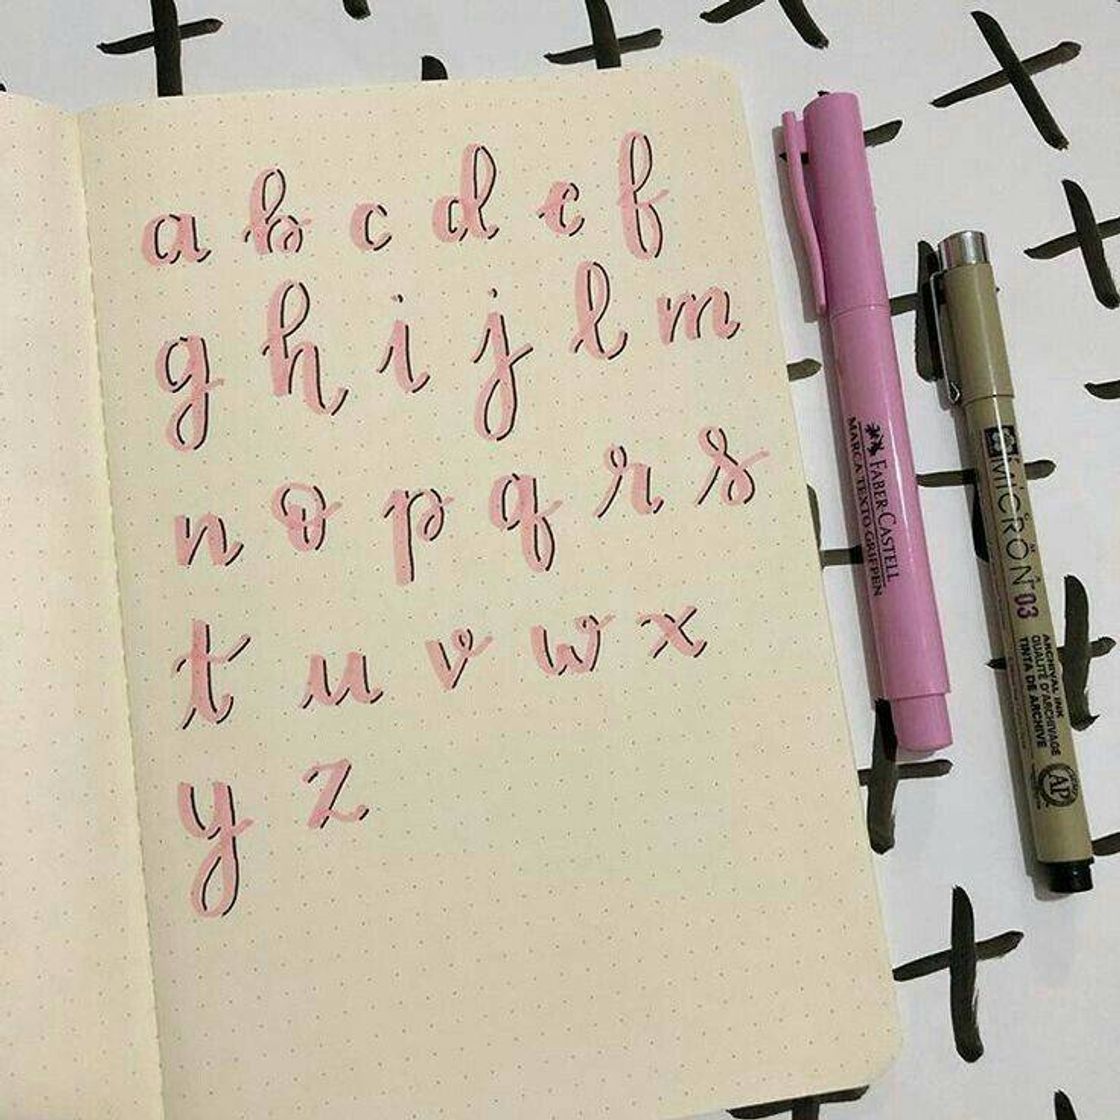 a b c d e f
g h i j l m
n o p q r s
t u v w x
y z
FABER CASTELL
MARCA TEXTO GRIFPEN
MICRON 03
ARCHIVAL INK
QUALITÉ D'ARCHIVAGE
TINTA DE ARCHIVE
AP